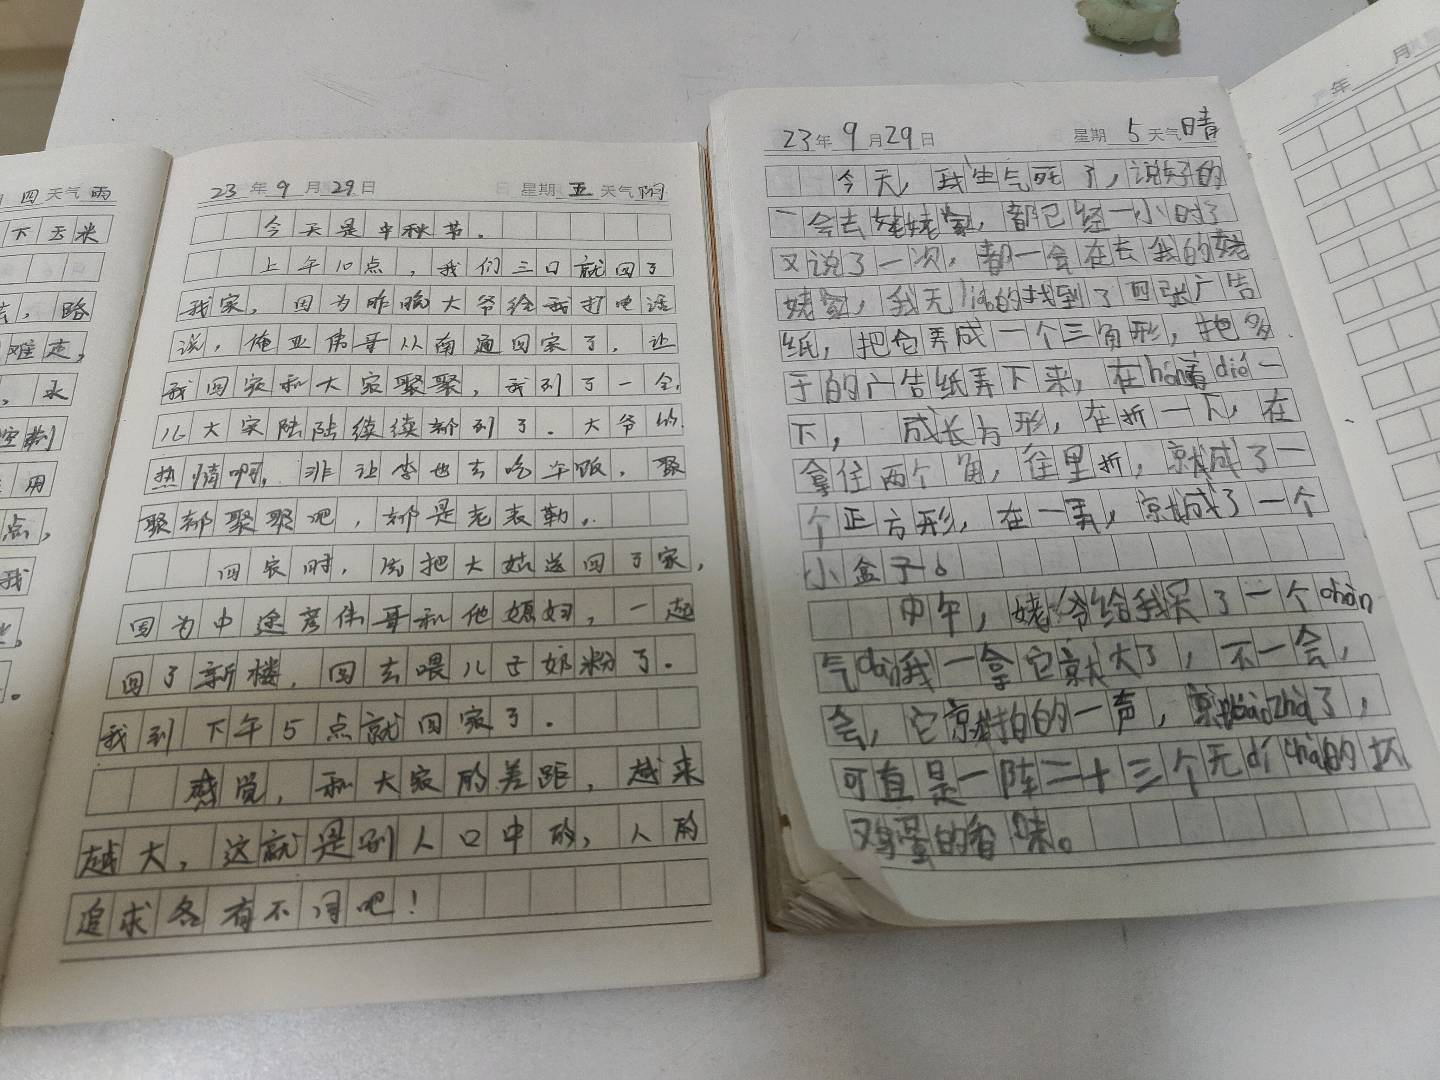 四 天气 雨
下去米
路
难走,
, 永
用
点,
我
23 年 9 月 29 日 星期 五 天气 阴
今天是中秋节.
上午10点,我们三口就回了
我家, 因为昨晚大爷给我打电话
说, 俺亚伟哥从南通回家了. 让
我回家和大家聚聚, 我到了一会,
儿大家陆陆续续都到了. 大爷的
热情啊, 非让李也去吃午饭, 聚
聚都聚聚吧, 都是老表勒,.
回家时, 把大姑送回了家,
因为中途彦伟哥和他媳妇, 一起
回了新楼, 回去喂儿子奶粉了.
我到下午5点就回家了.
感觉, 和大家的差距, 越来
越大, 这就是别人口中的, 人的
追求各有不同吧!
23 年 9 月 29 日 星期 5 天气 晴
今天, 我生气死了, 说好的
一会去姥姥家, 都已经一小时了
又说了一次, 都一会在去我的姥
姥家, 我无liáo的找到了四张广告
纸, 把它弄成一个三角形, 把多
于的广告纸弄下来, 在 dié一
下, 成长方形, 在折一下, 在
拿住两个角, 往里折, 就成了一
个正方形, 在一弄, 就成了一个
小盒子。
中午, 姥爷给我买了一个chōn
气dài我一拿它就大了, 不一会,
会, 它就拍的一声, 就bàozhà了,
可直是一阵二十三个无dí 的坏
鸡蛋的香味。
年 月